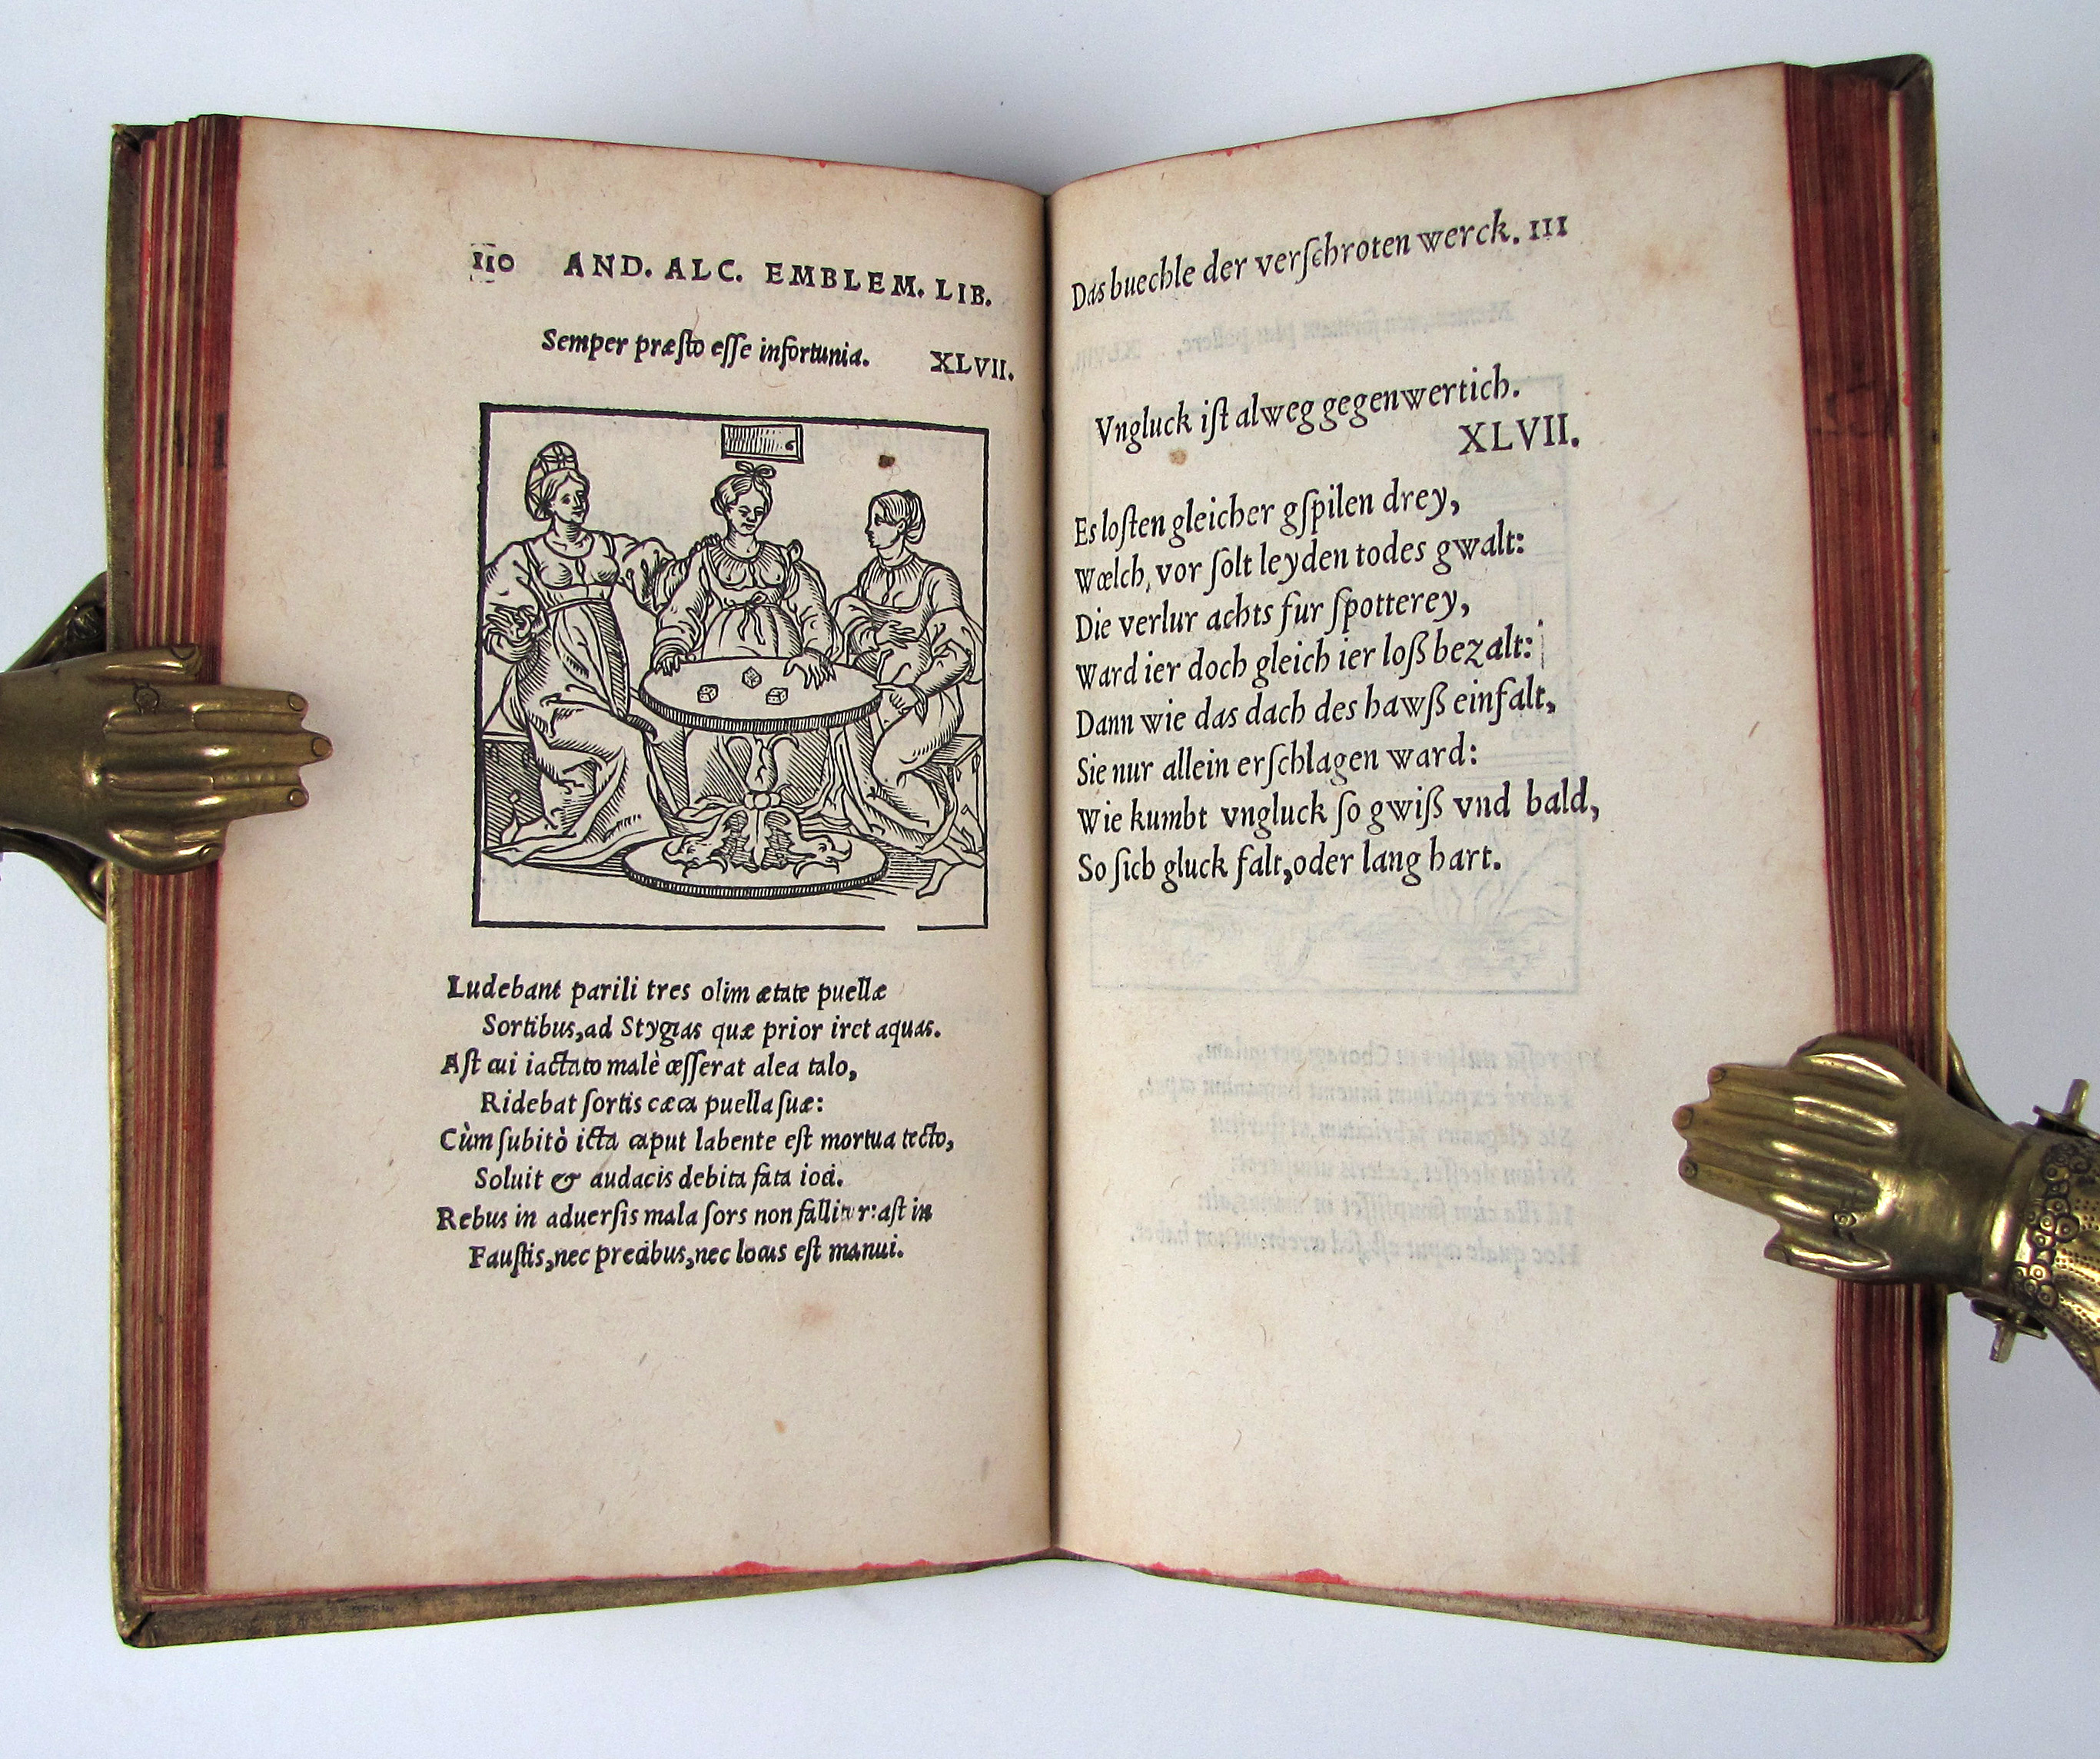 110 AND. ALC. EMBLEM. LIB.
Semper præſto eſſe infortunia. XLVII.
Ludebant parili tres olim ætate puellæ
Sortibus, ad Stygias quæ prior iret aquas.
Aſt cui iactato malè ceſſerat alea talo,
Ridebat ſortis cæca puella ſuæ:
Cùm ſubitò icta caput labente eſt mortua tecto,
Soluit & audacis debita fata ioci.
Rebus in aduerſis mala ſors non fallitur: aſt in
Fauſtis, nec precibus, nec locus eſt manui.
Das buechle der verſchroten werck. 111
Vngluck iſt alweg gegenwertich.
XLVII.
Es loſten gleicher gſpilen drey,
Wœlch, vor ſolt leyden todes gwalt:
Die verlur achts fur ſpotterey,
Ward ier doch gleich ier loß bezalt:
Dann wie das dach des hawß einfalt,
Sie nur allein erſchlagen ward:
Wie kumbt vngluck ſo gwiß vnd bald,
So ſich gluck falt, oder lang hart.